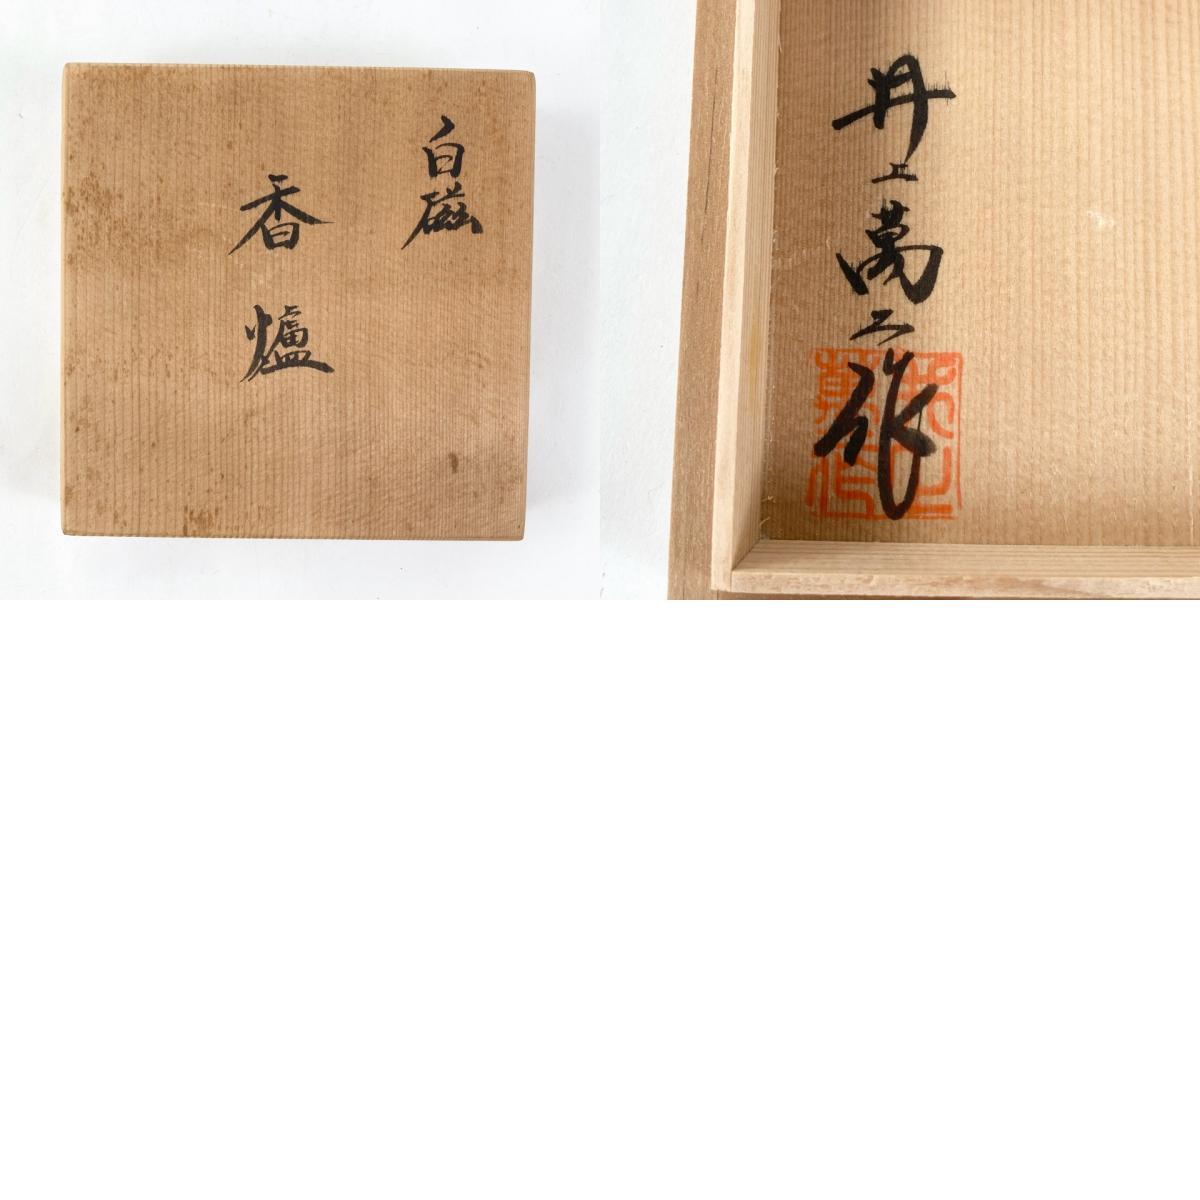 白磁
香爐
井上萬二作